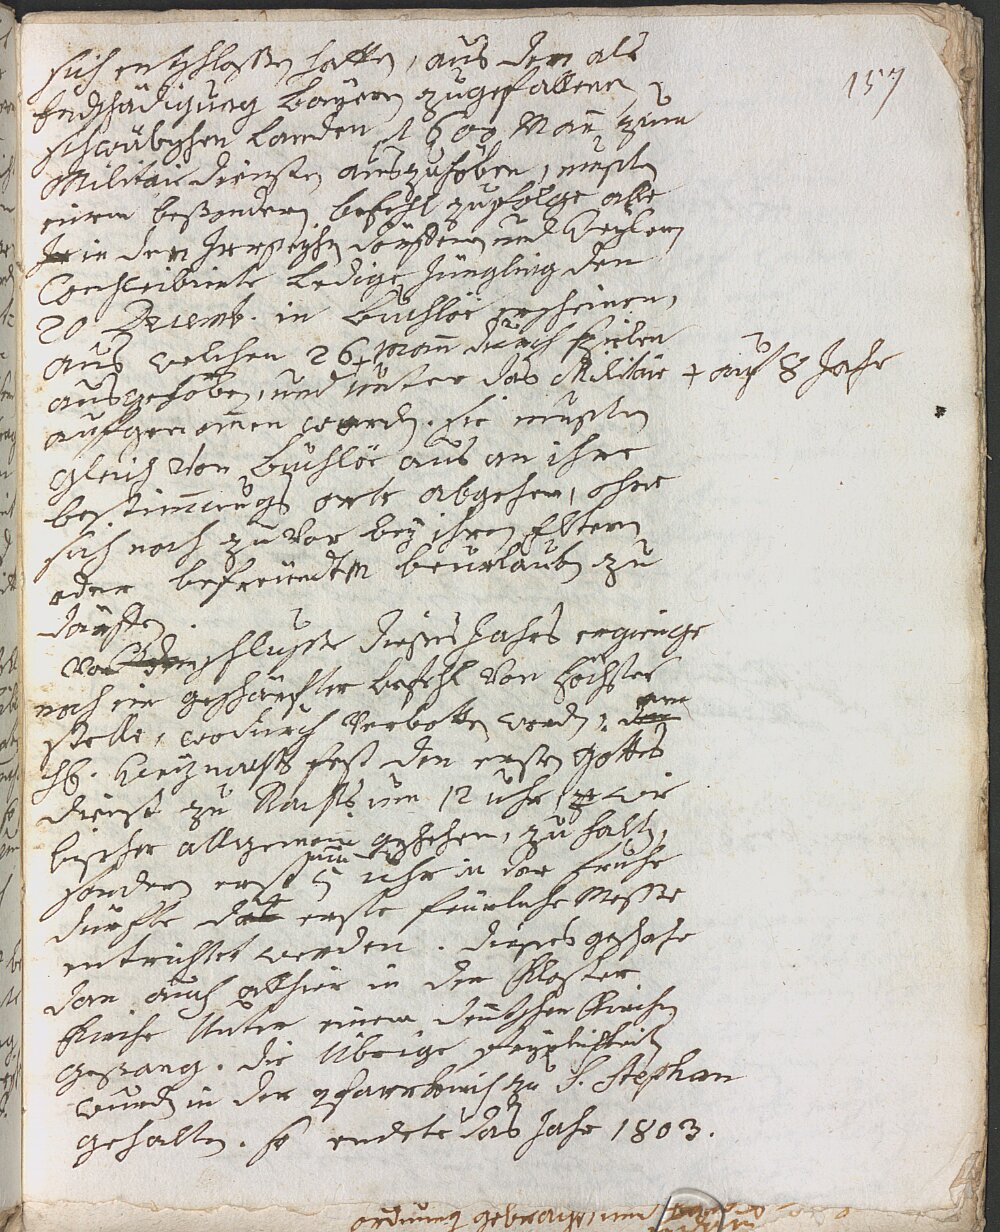 157
sich entschlossen hatte, aus den als
Endschädigung Bayern zugefallenen
schwübischen Landen 1600 Mann zum
Militair diensten auszuhöben, mußten
einem besondern befehl zufolge alle
in den Irrseeischen dörffern und Weylern
Conscribirte Ledige Jüngling den
20 Decemb. in Buchlöe erscheinen,
aus welchen 26 Mann durch spielen
ausgehöben, und unter das Militair + auf 8 Jahr
aufgenommen worden. sie mußten
gleich von Buchlöe aus an ihre
bestimmungs orte abgehen, ohne
sich noch zu vor bey ihren Eltern
oder befreündten beurlauben zu
dürffen.
vor dem schlusse dieses Jahrs ergienge
noch ein geschärfter befehl von höchster
stelle, wodurch verbotten worden, am
hl. Weÿnachts fest den ersten gottes
dienst zu Nachts um 12 uhr, wie
bischer allgemein geschehen, zu halten,
sondern erst um 5 uhr in der Fruhe
dürffte die erste feürliche Messe
entrichtet werden. dieses geschahe
dan auch allhier in der Kloster
Kirche unter einem deütschen Kirchen
gesang. die übrige feyrlichkeit
wurde in der pfarrkirch zu S. Stephan
gehalten. so endete das Jahr 1803.
ordnung